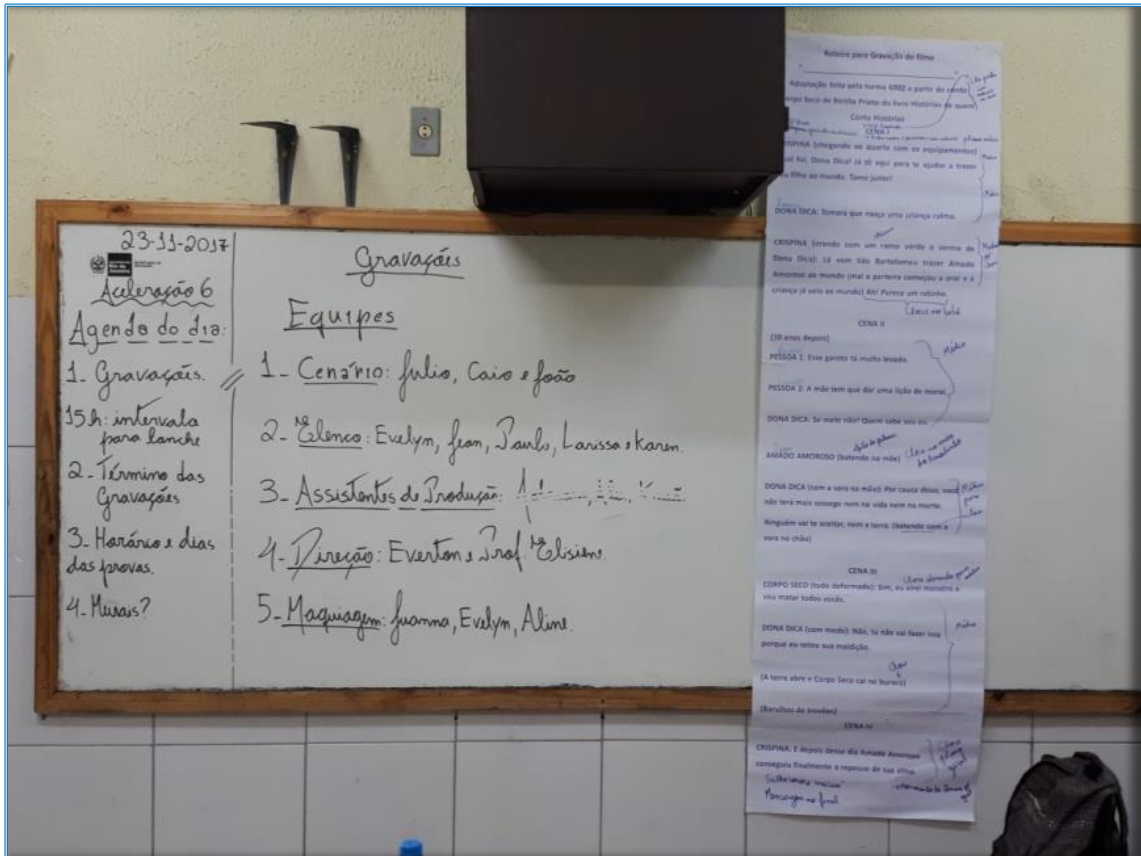 23-11-2017
Aceleração 6
Agenda do dia:
1- Gravações.
15h: intervalo
para lanche
2- Término das
Gravações
3- Horário e dias
das provas.
4- Murais?
Gravações
Equipes
1- Cenário: Julio, Caio e João
2- Elenco: Evelyn, Jean, Paulo, Larissa e Karen.
3- Assistentes de Produção:
4- Direção: Everton e Prof. Elisiene.
5- Maquiagem: Juanna, Evelyn, Aline.
Roteiro para Gravação do filme
Adaptação feita pela turma 6002 a partir do conto
Corpo Seco de Benita Prieto do livro Histórias de quem
Conta Histórias
CENA I
CRISPINA (chegando ao quarto com os equipamentos)
foi, Dona Dica! Já tô aqui para te ajudar a trazer
filho ao mundo. Tamo junto!
DONA DICA: Tomara que nasça uma criança calma.
CRISPINA (orando com um ramo verde o ventre de
Dona Dica): Lá vem São Bartolomeu trazer Amado
Amoroso ao mundo (mal a parteira começou a orar e a
criança já veio ao mundo) Ah! Parece um ratinho.
Close no bebê
CENA II
(10 anos depois)
Médio
PESSOA 1: Esse garoto tá muito levado.
PESSOA 2: A mãe tem que dar uma lição de moral.
DONA DICA: Se mete não! Quem sabe sou eu.
AMADO AMOROSO (batendo na mãe)
DONA DICA (com a vara na mão): Por causa disso, você
não terá mais sossego nem na vida nem na morte.
Ninguém vai te aceitar, nem a terra. (batendo com a
vara no chão)
CENA III
CORPO SECO (todo deformado): Sim, eu virei monstro e
vou matar todos vocês.
DONA DICA (com medo): Não, tu não vai fazer isso
porque eu retiro sua maldição.
(A terra abre e Corpo Seco cai no buraco)
(Barulhos de trovões)
CENA IV
CRISPINA: E depois desse dia Amado Amoroso
conseguiu finalmente o repouso de sua alma.